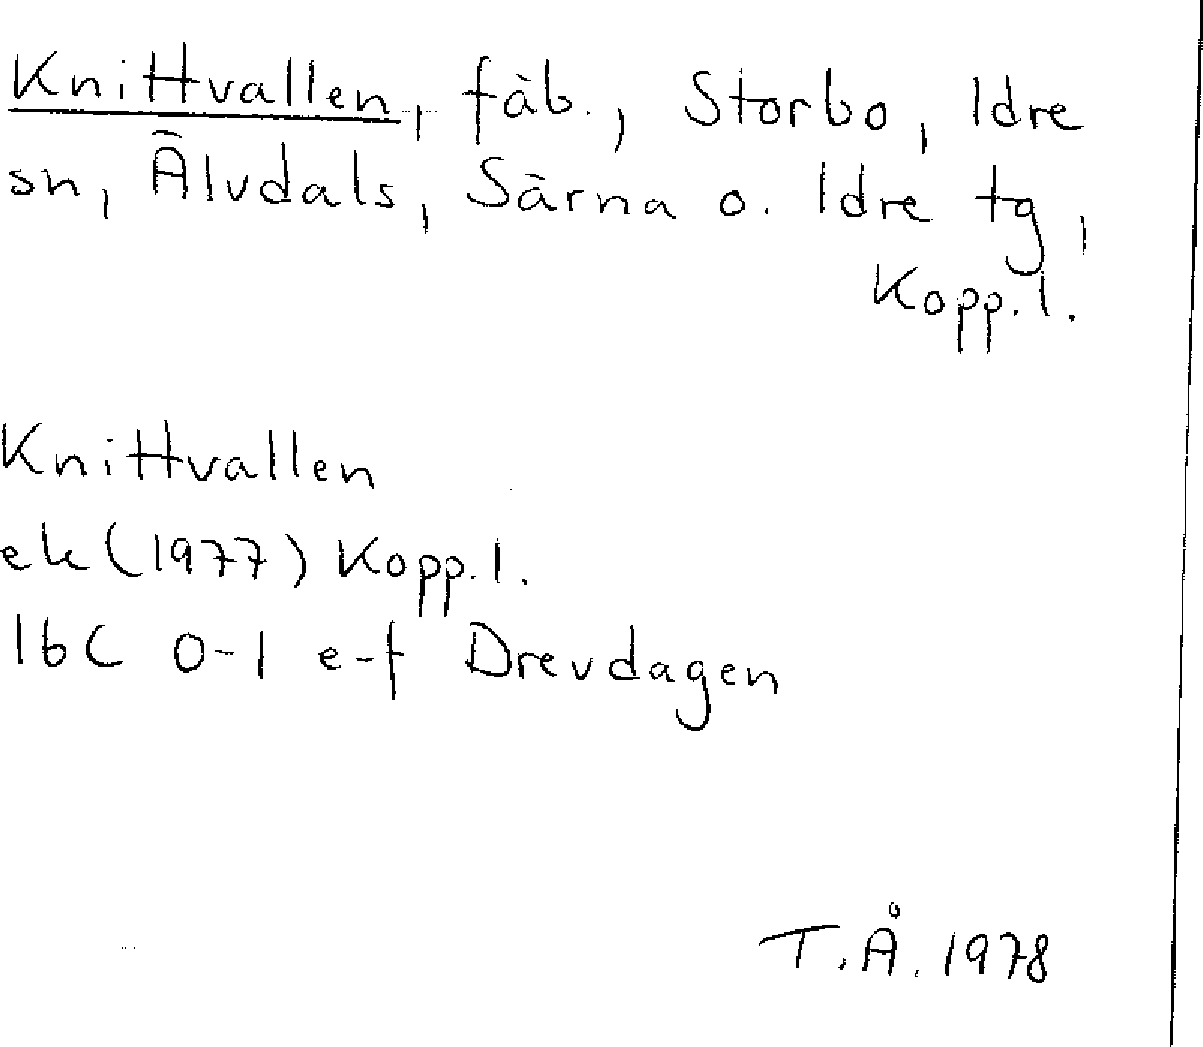 Knittvallen, fäb., Storbo, Idre
sn, Älvdals, Särna o. Idre tg,
Kopp. l.
Knittvallen
ek (1977) Kopp. l.
16C 0-1 e-f Drevdagen
T. Å. 1978